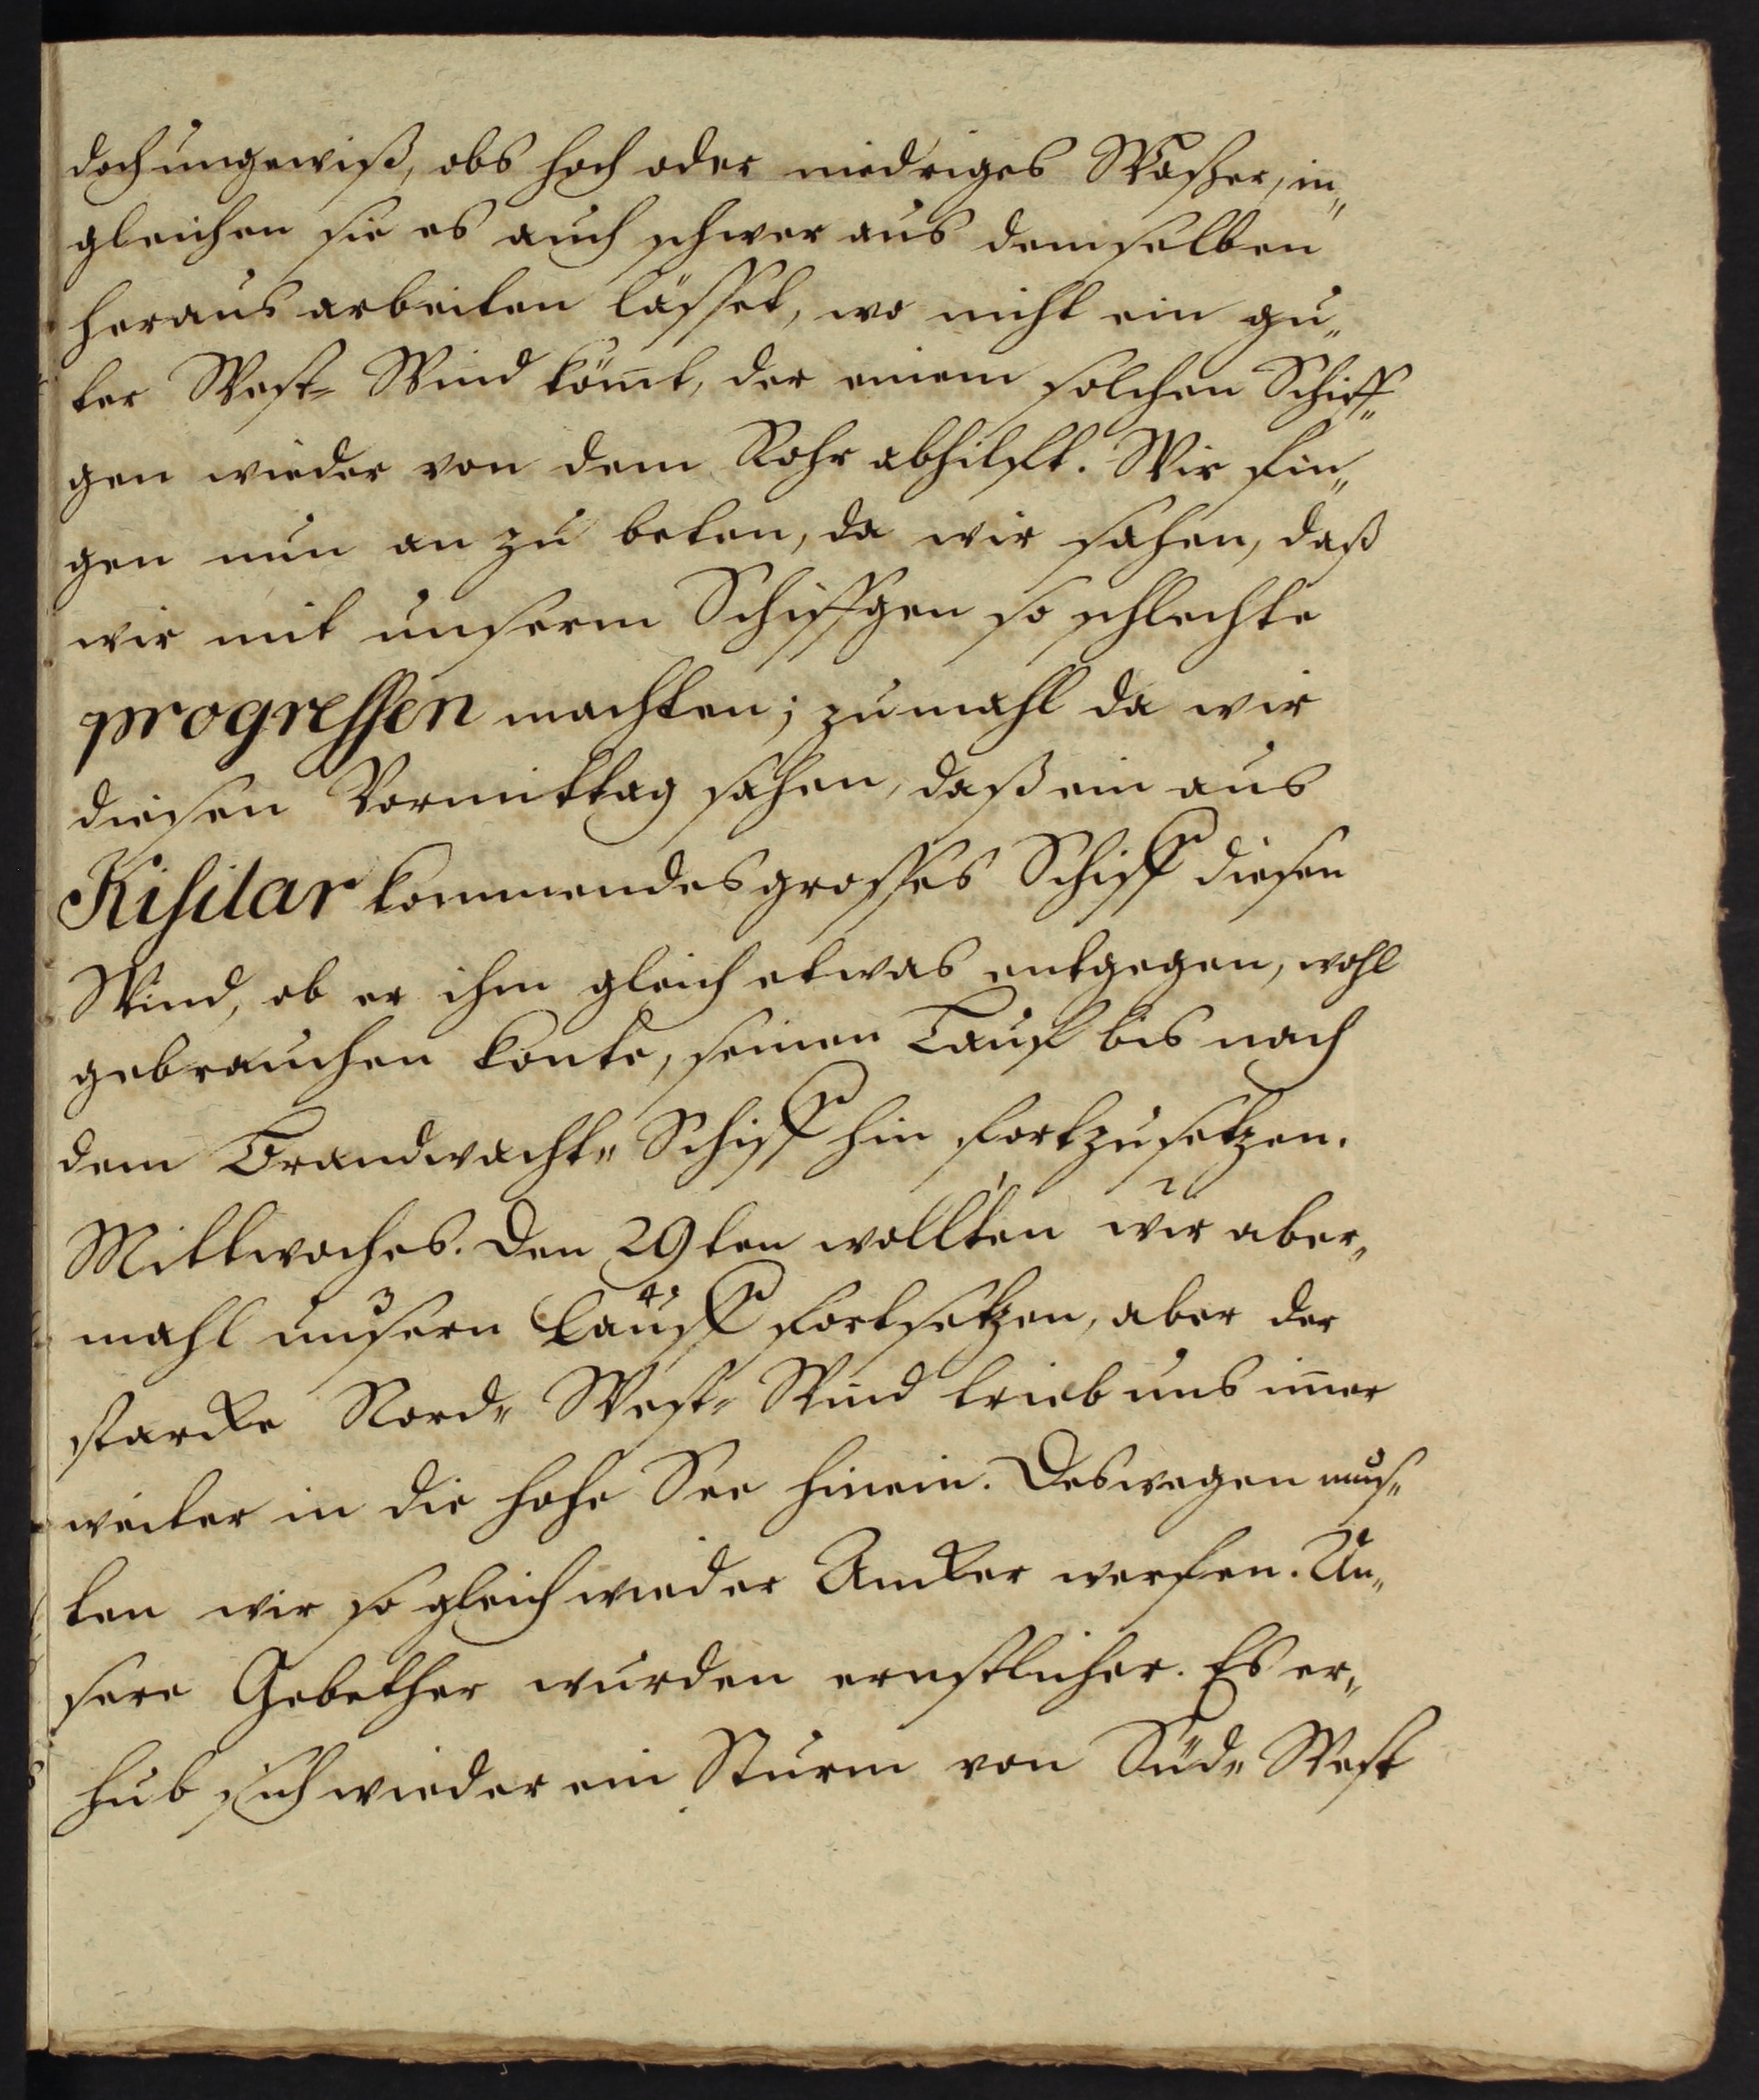 doch ungewiß, obs hoch oder niedriges Waßer, in„
gleichen sie es auch schwer aus demselben
heraus arbeiten lässet, wo nicht ein gu„
ter West- Wind köm̅t, der einem solchen Schiff„
gen wieder von dem Rohr abhilft. Wir fin„
gen nun an zu beten, da wir sahen, daß
wir mit unserm Schiffgen so schlechte
progressen machten; zumahl da wir
diesen Vormittag sahen, daß ein aus
Kisilar kommendes grosses Schiff diesen
Wind, ob er ihm gleich etwas entgegen, wohl
gebrauchen konte, seinen Lauf bis nach
dem Brandwacht„ Schiff hin fortzusetzen.
Mittwoches. den 29ten wollten wir aber„
mahl unsern Lauff fortsetzen, aber der
starcke Nord„ West„ Wind trieb uns im̅er
weiter in die hohe See hinein. Deswegen mus„
ten wir so gleich wieder Ancker werfen. Un„
sere Gebether wurden ernstlicher. Es er„
hub sich wieder ein Sturm von Süd„ West